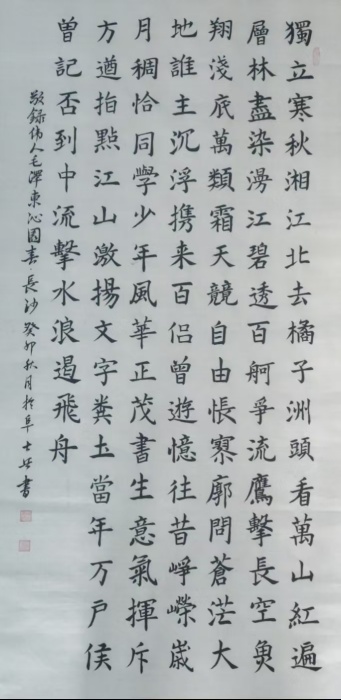 獨立寒秋湘江北去橘子洲頭看萬山紅遍
層林盡染漫江碧透百舸爭流鷹擊長空魚
翔淺底萬類霜天競自由悵寥廓問蒼茫大
地誰主沉浮携来百侣曾遊憶往昔崢嶸歲
月稠恰同學少年風華正茂書生意氣揮斥
方遒指點江山激揚文字糞土當年万户侯
曾記否到中流擊水浪遏飛舟
敬録伟人毛澤東沁园春·長沙癸卯秋月於阜士書